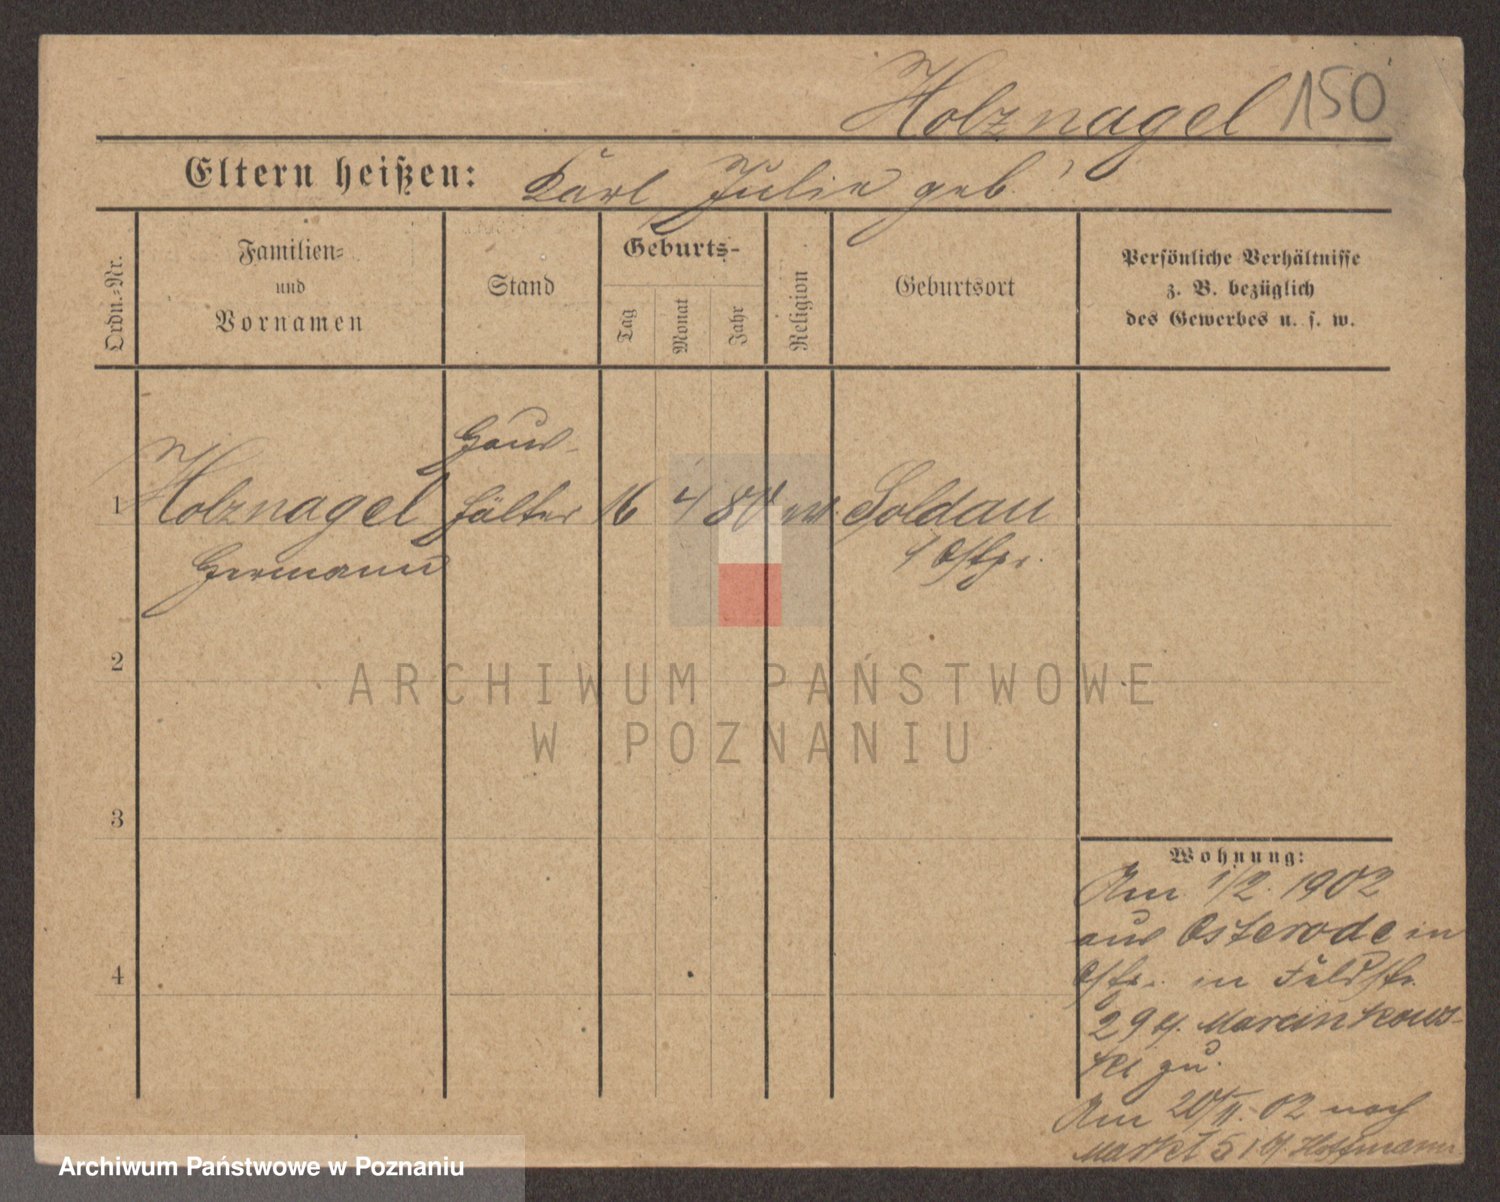 Holznagel 150
Eltern heißen: Karl Julie geb
Ordn.-Nr.
Familien-
und
Vornamen
Stand
Geburts-
Tag
Monat
Jahr
Religion
Geburtsort
Persönliche Verhältnisse
z. B. bezüglich
des Gewerbes u. s. w.
Haus-
1 Holznagel hälter 16 4 80 ev. Soldau
Hermann
Ostpr.
2
ARCHIWUM PAŃSTWOWE
W POZNANIU
3
4
Wohnung:
Am 1/2. 1902
aus Osterode in
Ostpr. in Feldstr.
29 Marcinkows-
ki zu.
Am 20/II. 02 nach
Markt 51 Hoffmann
Archiwum Państwowe w Poznaniu